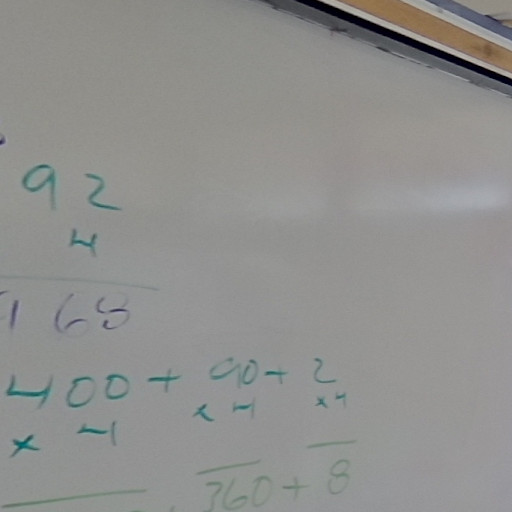 92
4
968
400 + 90 + 2
x 4 x 4 x4
360 + 8